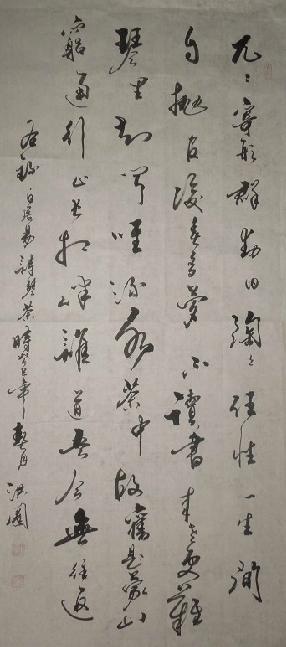 兀々寄形群動内陶々任性一生間
自抛官後春多夢不讀書来老更難
琴里知聞唯渌水茶中故舊是蒙山
窮通行止長相伴誰道吾今無往返
右録白居易詩琴茶時癸巳年月洪國